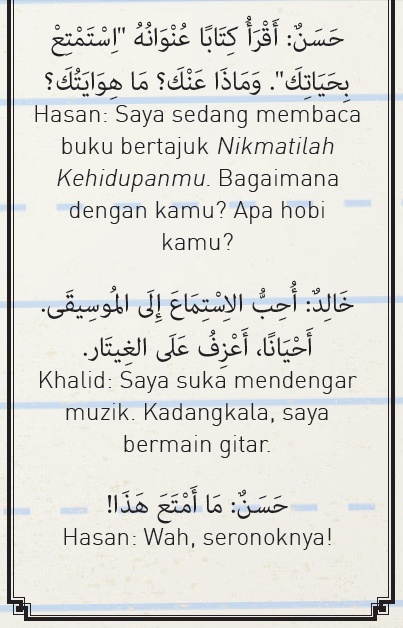 حَسَنٌ: أَقْرَأُ كِتَابًا عُنْوَانُهُ "اِسْتَمْتِعْ
بِحَيَاتِكَ". وَمَاذَا عَنْكَ؟ مَا هِوَايَتُكَ؟
Hasan: Saya sedang membaca
buku bertajuk Nikmatilah
Kehidupanmu. Bagaimana
dengan kamu? Apa hobi
kamu?
خَالِدٌ: أُحِبُّ الاِسْتِمَاعَ إِلَى المُوسِيقَى.
أَحْيَانًا، أَعْزِفُ عَلَى الغِيتَار.
Khalid: Saya suka mendengar
muzik. Kadangkala, saya
bermain gitar.
حَسَنٌ: مَا أَمْتَعَ هَذَا!
Hasan: Wah, seronoknya!